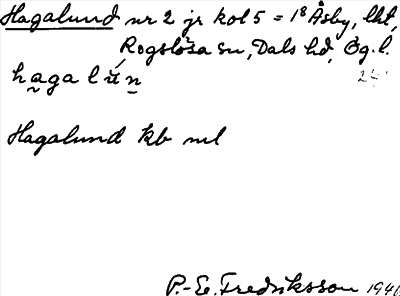 Hagalund nr 2 jr kol 5 = 1⁸ Åsby, lht,
Rogslösa sn, Dals hd, Ög. l.
h a g a l ú n
Hagalund kb ml
P.-E. Fredriksson